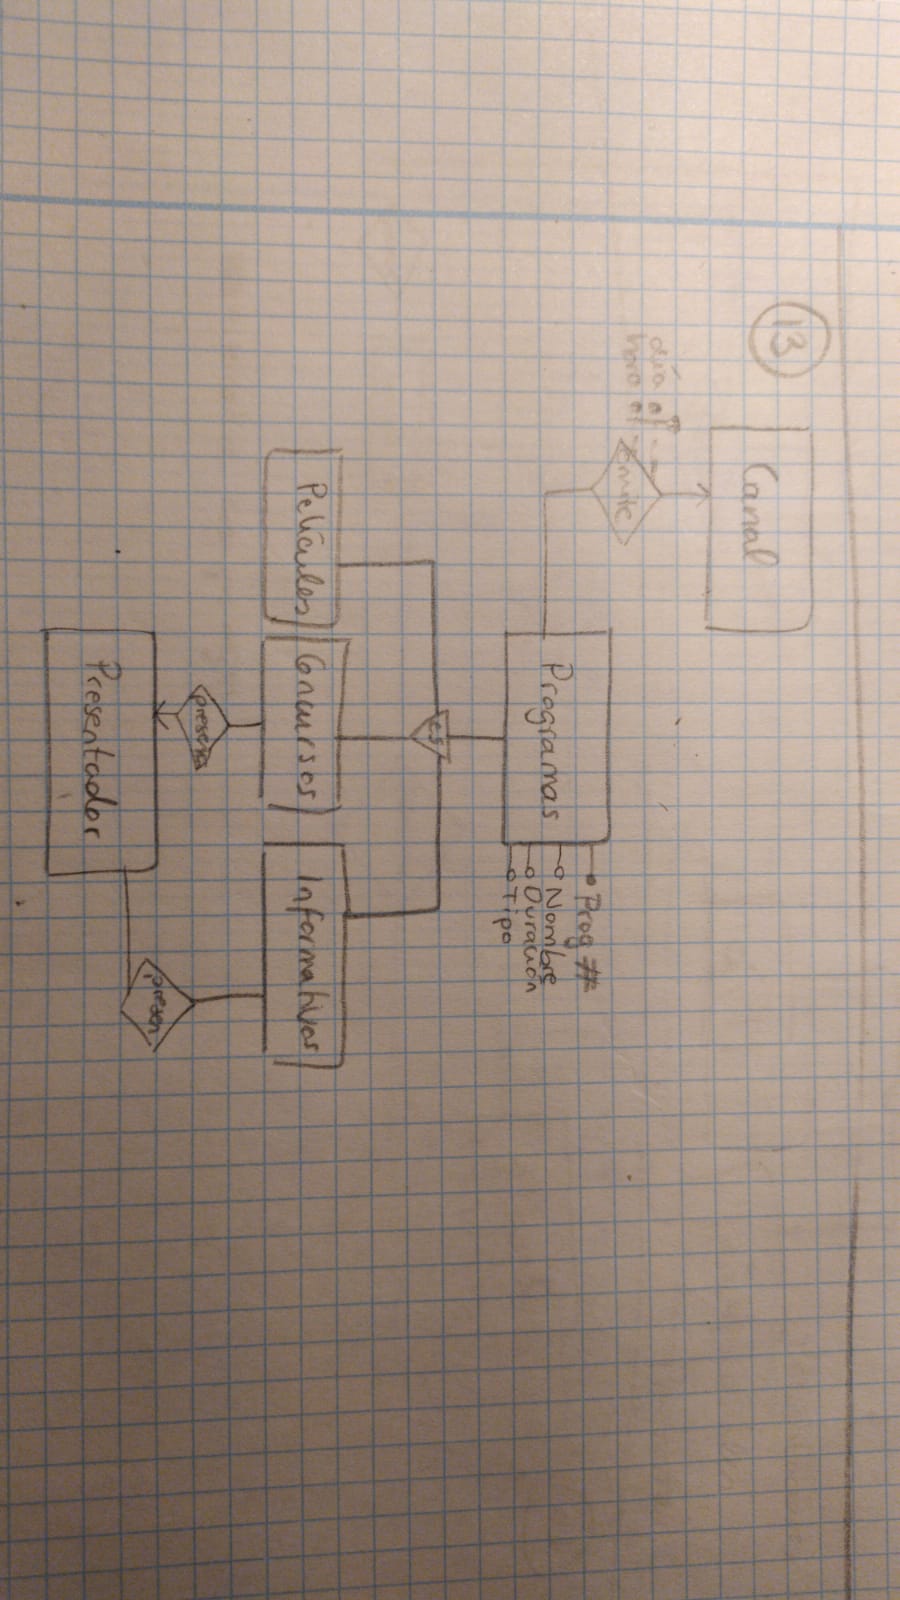 13
Canal
día
hora
emite
Programas
Prog #
Nombre
Duración
Tipo
es
Películas
Concursos
Informativos
presenta
presen
Presentador